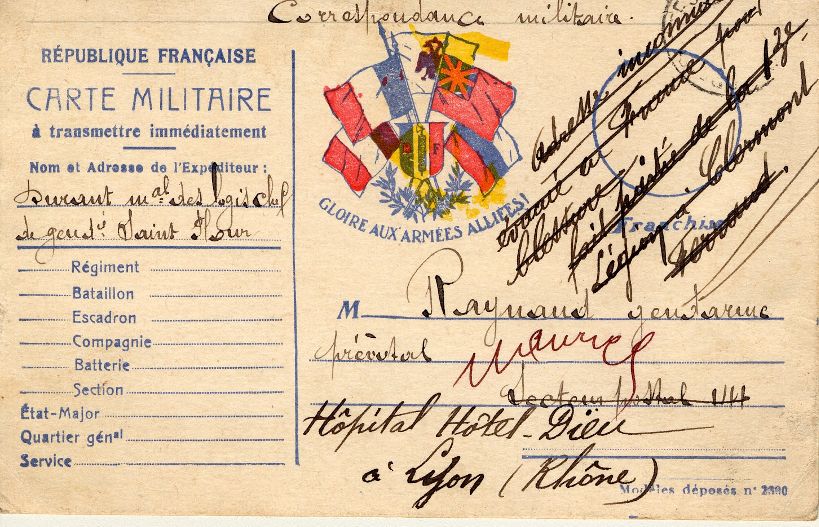 Correspondance militaire.
RÉPUBLIQUE FRANÇAISE
CARTE MILITAIRE
à transmettre immédiatement
Nom et Adresse de l'Expéditeur :
Durant mal des logis chef
de gendie Saint Flour
Régiment
Bataillon
Escadron
Compagnie
Batterie
Section
État-Major
Quartier génal
Service
R F
GLOIRE AUX ARMÉES ALLIÉES!
Adresse inconnue
évacué à pour
blessure
fait partie de la 13e
Légion à Clermont
Ferrand.
Franchise
M Raynaud gendarme
prévotal
Secteur postal 44
Hôpital Hôtel-Dieu
à Lyon (Rhône)
Modèles déposés n° 2390